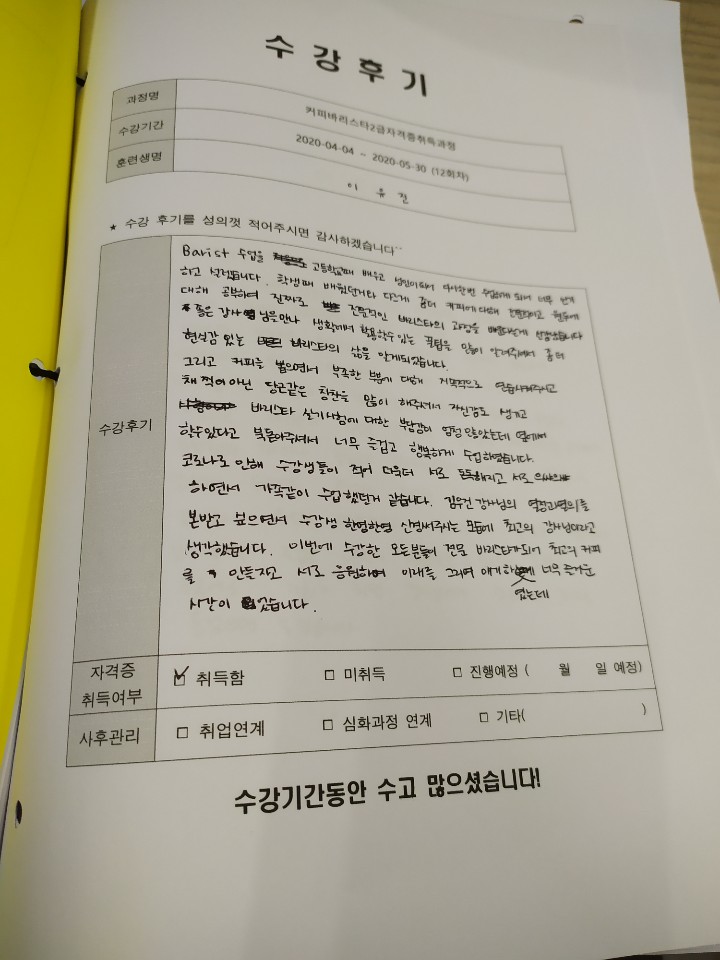 수강후기
과정명 커피바리스타2급자격증취득과정
수강기간 2020-04-04 ~ 2020-05-30 (12회차)
훈련생명 이 유 진
★ 수강 후기를 성의껏 적어주시면 감사하겠습니다^^
수강후기
Barist 수업을 고등학교때 배우고 성인이되서 다시한번 수업하게 되어 너무
하고 설렜습니다. 학생때 배웠던거와 다르게 좀더 커피에대해
대해 공부하여 진짜로 전문적인 바리스타의 과정을
좋은 강사님을만나 생활에서 활용할수있는 꿀팁을 많이 알려주셔서 좀더
현실감 있는 바리스타의 삶을 알게되었습니다.
그리고 커피를 뽑으면서 부족한 부분에 대해 연습시켜주시고
채찍이아닌 당근같은 칭찬을 많이 해주셔서 자신감도 생기고
바리스타 실기시험에 대한 부담감이 엄청 많았는데 옆에서
할수있다고 북돋아주셔서 너무 즐겁고 행복하게 수업하였습니다.
코로나로 인해 수강생들이 적어 더욱더 서로 돈독해지고 서로
하면서 가족같이 수업했던거 같습니다. 강사님의
본받고 싶으면서 수강생 한명한명 신경써주시는 모습에 최고의 강사님이라고
생각했습니다. 이번에 수강한 모든분들이 전문 바리스타가되어 최고의 커피
를 만들자고 서로 응원하며 미래를 그리며 얘기하 너무 즐거운
였는데
시간이 었습니다.
자격증 취득여부 ☑ 취득함 □ 미취득 □ 진행예정 ( 월 일 예정)
사후관리 □ 취업연계 □ 심화과정 연계 □ 기타( )
수강기간동안 수고 많으셨습니다!